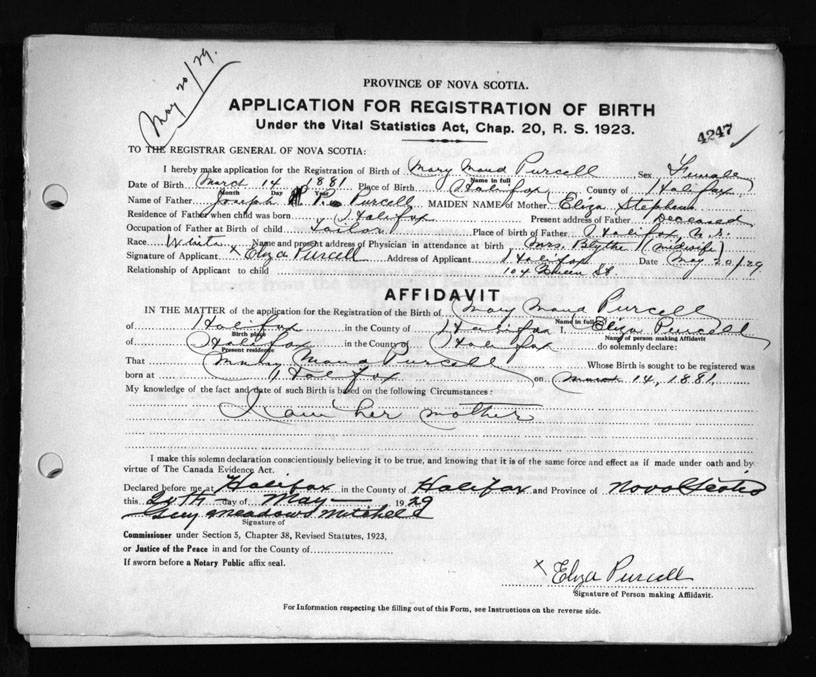 May 20/29.
PROVINCE OF NOVA SCOTIA.
APPLICATION FOR REGISTRATION OF BIRTH
Under the Vital Statistics Act, Chap. 20, R. S. 1923.
4247
TO THE REGISTRAR GENERAL OF NOVA SCOTIA:
I hereby make application for the Registration of Birth of Mary Maud Purcell Sex Female
Name in full
Date of Birth March 14 1881 Place of Birth Halifax County of Halifax
Month Day Year
Name of Father Joseph P. Purcell MAIDEN NAME of Mother Eliza Stephens
Residence of Father when child was born Halifax Present address of Father Deceased
Occupation of Father at Birth of Child Tailor Place of birth of Father Halifax, N.S.
Race White Name and present address of Physician in attendance at birth Mrs. Blythe (midwife)
Signature of Applicant x Eliza Purcell Address of Applicant Halifax Date May 20/29
Relationship of Applicant to child 104 Queen St.
AFFIDAVIT
IN THE MATTER of the application for the Registration of the Birth of Mary Maud Purcell
Name in full
of Halifax in the County of Halifax I, Eliza Purcell
Birth place Name of person making Affidavit
of Halifax in the County of Halifax do solemnly declare:
Present residence
That Mary Maud Purcell Whose Birth is sought to be registered was
born at Halifax on March 14, 1881
My knowledge of the fact and date of such Birth is based on the following Circumstances:
I am her mother
I make this solemn declaration conscientiously believing it to be true, and knowing that it is of the same force and effect as if made under oath and by
virtue of The Canada Evidence Act.
Declared before me at Halifax in the County of Halifax and Province of Nova Scotia
this 20th day of May 1929
Guy Meadows Mitchell
Signature of
Commissioner under Section 5, Chapter 38, Revised Statutes, 1923,
or Justice of the Peace in and for the County of
If sworn before a Notary Public affix seal.
x Eliza Purcell
Signature of Person making Affidavit.
For Information respecting the filling out of this Form, see Instructions on the reverse side.